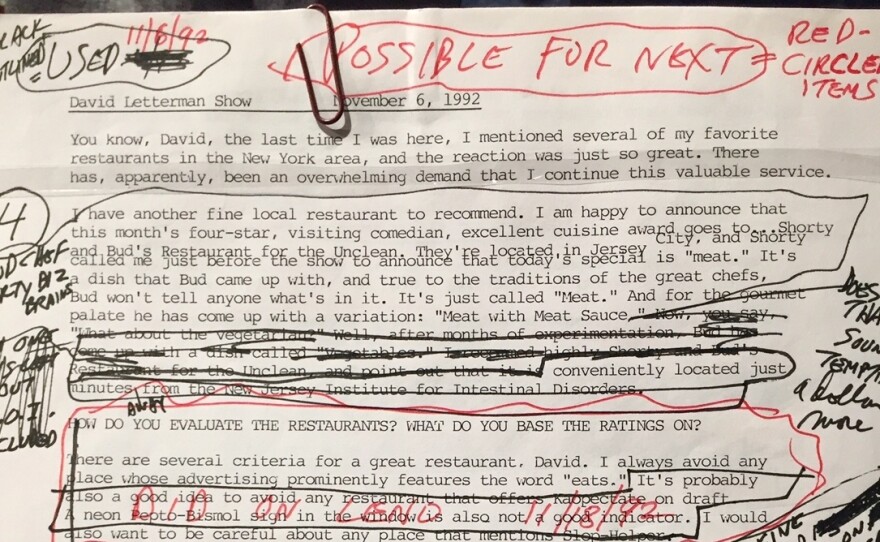 BLACK
OUTLINED
= USED 11/6/92
POSSIBLE FOR NEXT =
RED-
CIRCLED
ITEMS
David Letterman Show November 6, 1992
You know, David, the last time I was here, I mentioned several of my favorite
restaurants in the New York area, and the reaction was just so great. There
has, apparently, been an overwhelming demand that I continue this valuable service.
4
I have another fine local restaurant to recommend. I am happy to announce that
this month's four-star, visiting comedian, excellent cuisine award goes to...Shorty
and Bud's Restaurant for the Unclean. They're located in Jersey City, and Shorty
called me just before the show to announce that today's special is "meat." It's
a dish that Bud came up with, and true to the traditions of the great chefs,
Bud won't tell anyone what's in it. It's just called "Meat." And for the gourmet
palate he has come up with a variation: "Meat with Meat Sauce." Now, you say,
"What about the vegetarian?" Well, after months of experimentation, Bud has
come up with a dish called "Vegetables." I recommend highly Shorty and Bud's
Restaurant for the Unclean, and point out that it is conveniently located just
minutes from the New Jersey Institute for Intestinal Disorders.
AWAY
CHEF
BIZ
BRAINS
DOES
THAT
SOUND
TEMPT
a dollar
more
OVER
OUT
HOW DO YOU EVALUATE THE RESTAURANTS? WHAT DO YOU BASE THE RATINGS ON?
There are several criteria for a great restaurant, David. I always avoid any
place whose advertising prominently features the word "eats." It's probably
also a good idea to avoid any restaurant that offers Kaopectate on draft
DID ON LENO 11/18/92
A neon Pepto-Bismol sign in the window is also not a good indicator. I would
also want to be careful about any place that mentions Slop-Helper.